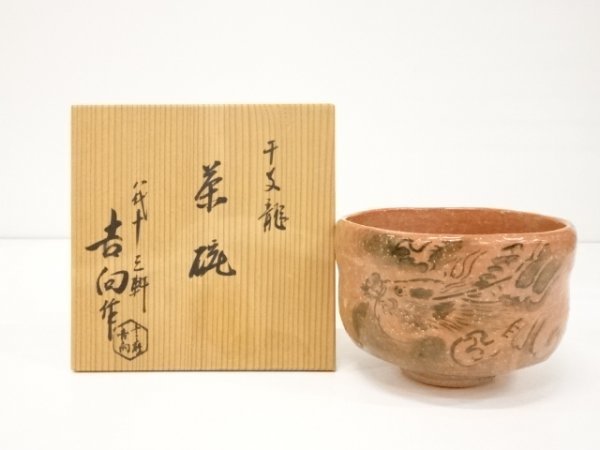 干支龍
茶碗
八代十三軒
吉向作
十三軒
吉向